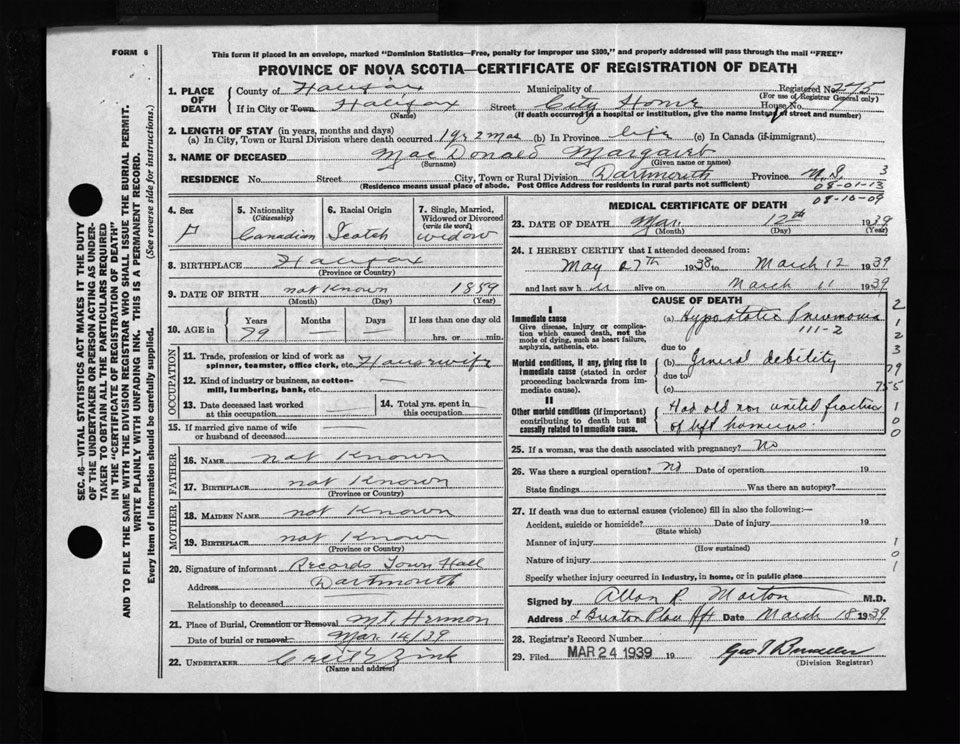 FORM 6
This form if placed in an envelope, marked "Dominion Statistics—Free, penalty for improper use $300," and properly addressed will pass through the mail "FREE"
PROVINCE OF NOVA SCOTIA—CERTIFICATE OF REGISTRATION OF DEATH
SEC. 46—VITAL STATISTICS ACT MAKES IT THE DUTY
OF THE UNDERTAKER OR PERSON ACTING AS UNDER-
TAKER TO OBTAIN ALL THE PARTICULARS REQUIRED
IN THE "CERTIFICATE OF REGISTRATION OF DEATH"
AND TO FILE THE SAME WITH THE DIVISION REGISTRAR WHO SHALL ISSUE THE BURIAL PERMIT.
WRITE PLAINLY WITH UNFADING INK. THIS IS A PERMANENT RECORD.
Every item of Information should be carefully supplied. (See reverse side for instructions.)
1. PLACE OF DEATH
County of Halifax Municipality of Registered No. 275
(For use of Registrar General only)
If in City or Town Halifax Street City Home House No.
(Name) (If death occurred in a hospital or institution, give the name instead of street and number)
2. LENGTH OF STAY (in years, months and days)
(a) In City, Town or Rural Division where death occurred 1 yr 2 mos (b) In Province life (c) In Canada (if immigrant)
3. NAME OF DECEASED MacDonald Margaret
(Surname) (Given name or names)
RESIDENCE No. Street City, Town or Rural Division Dartmouth Province N.S. 3
(Residence means usual place of abode. Post Office Address for residents in rural parts not sufficient)
08-01-13
08-10-09
4. Sex
F
5. Nationality
(Citizenship)
Canadian
6. Racial Origin
Scotch
7. Single, Married,
Widowed or Divorced
(write the word)
Widow
8. BIRTHPLACE Halifax
(Province or County)
9. DATE OF BIRTH not Known 1859
(Month) (Day) (Year)
10. AGE in
Years Months Days If less than one day old
79 — — hrs. or min.
OCCUPATION
11. Trade, profession or kind of work as
spinner, teamster, office clerk, etc. Housewife
12. Kind of industry or business, as cotton-
mill, lumbering, bank, etc. —
13. Date deceased last worked
at this occupation —
14. Total yrs. spent in
this occupation —
15. If married give name of wife
or husband of deceased —
FATHER
16. NAME not Known
17. BIRTHPLACE not Known
(Province or Country)
MOTHER
18. MAIDEN NAME not Known
19. BIRTHPLACE not Known
(Province or Country)
20. Signature of informant Records Town Hall
Address Dartmouth
Relationship to deceased
21. Place of Burial, Cremation or Removal Mt. Hermon
Date of burial or removal Mar. 14/39
22. UNDERTAKER Zink
(Name and address)
MEDICAL CERTIFICATE OF DEATH
23. DATE OF DEATH Mar. 12th 1939
(Month) (Day) (Year)
24. I HEREBY CERTIFY that I attended deceased from:
May 27th 1938 to March 12 1939
and last saw her alive on March 11 1939
CAUSE OF DEATH
I
Immediate cause
Give disease, injury or complica-
tion which caused death, not the
mode of dying, such as heart failure,
asphyxia, asthenia, etc.
(a) Hypostatic Pneumonia
111-2
due to
Morbid conditions, if any, giving rise to
immediate cause (stated in order
proceeding backwards from im-
mediate cause).
(b) General debility
due to
(c)
II
Other morbid conditions (if important)
contributing to death but not
causally related to immediate cause.
Had old non united fracture
of left humerus.
2
1
2
3
79
755
1
0
0
25. If a woman, was the death associated with pregnancy? No
26. Was there a surgical operation? No Date of operation 19
State findings Was there an autopsy?
27. If death was due to external causes (violence) fill in also the following:—
Accident, suicide or homicide? Date of injury 19
(State which)
Manner of injury
(How sustained)
Nature of injury
Specify whether injury occurred in industry, in home, or in public place
1
0
1
Signed by Allan R. Morton M.D.
Address Date March 18 1939
28. Registrar's Record Number
29. Filed MAR 24 1939 19
(Division Registrar)